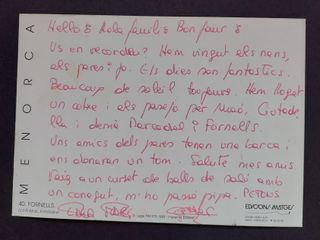 Hello & Hola família Bonjour &
Us en recordeu? Hem vingut els nens,
els pares i jo. Els dies son fantastics.
Beaucoup de soleil toujours. Hem llogat
un cotxe i els passejo per Maó, Ciutade-
lla i demà Mercadal i Fornells.
Uns amics dels pares tenen una barca i
ens donaran un tom. Salute mes amis
Vaig a un curset de balls de saló amb
un conegut, m'ho passo pipa. PETONS
MENORCA
40. FORNELLS.
EDICIONS AMISTGES